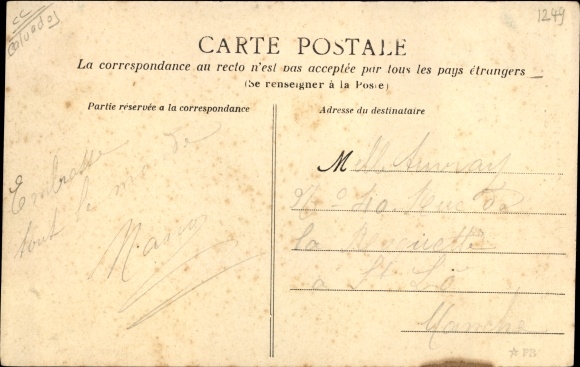 CC
Calvados
1249
CARTE POSTALE
La correspondance au recto n'est pas acceptée par tous les pays étrangers
(Se renseigner à la Poste)
Partie réservée a la correspondance
Adresse du destinataire
Embrasse
tout le monde
M Auvray
Rue de
la
à St Lô
Manche
PB